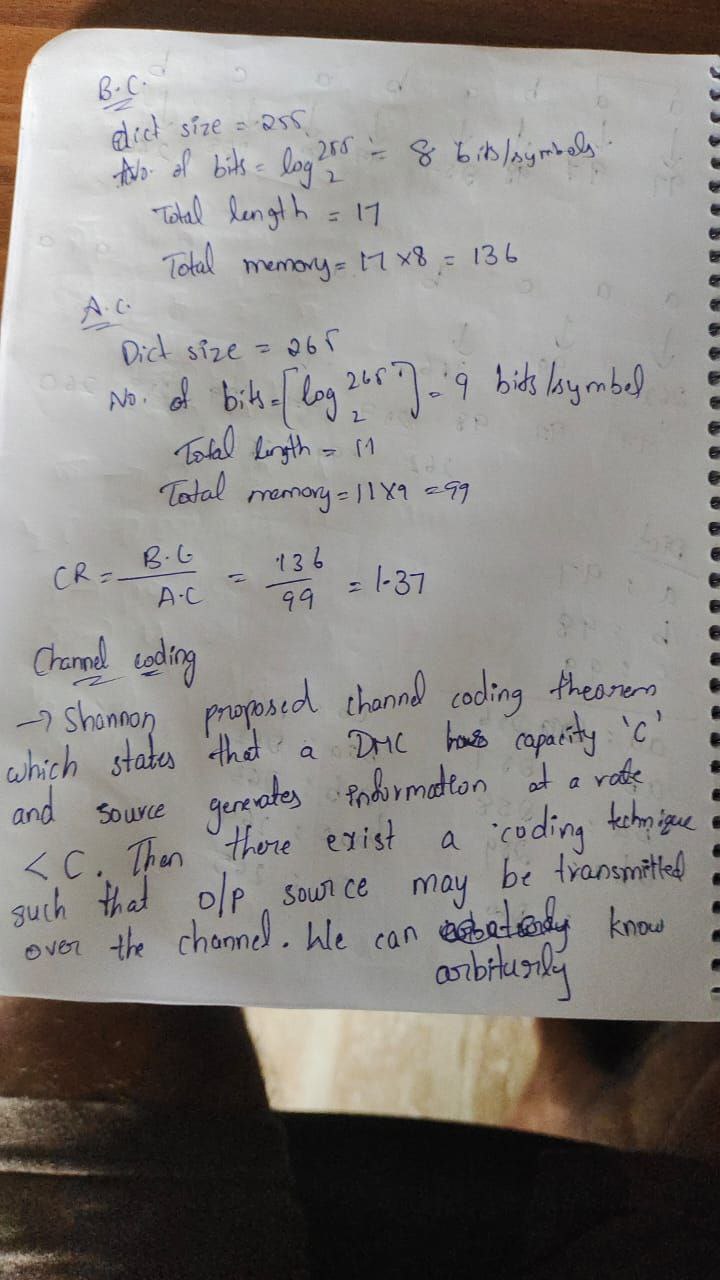 B.C.
dict size = 255
No. of bits = log 255 2 = 8 bits/symbols.
Total length = 17
Total memory = 17 x8 = 136
A.C.
Dict size = 265
No. of bits = [log 265 2] = 9 bits/symbol
Total length = 11
Total memory = 11x9 = 99
CR = B.C / A.C = 136 / 99 = 1.37
Channel coding
→ Shannon proposed channel coding theorem
which states that a DMC has capacity 'C'
and source generates information at a rate
< C. Then there exist a coding technique
such that o/p source may be transmitted
over the channel. We can know
arbiturily